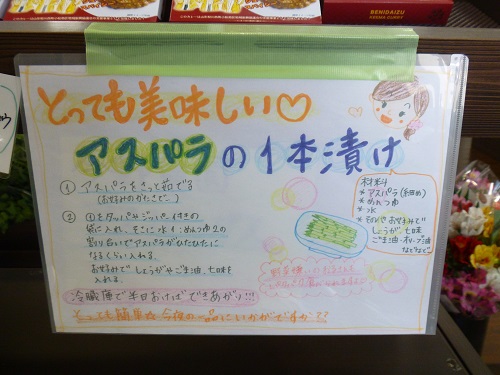 BENIDAIZU
KEEMA CURRY
とっても美味しい♡
アスパラの1本漬け
① アスパラをさっと茹でる
(お好みのかたさで)
② ①をタッパやジッパー付きの
袋に入れ、そこに水1:めんつゆ2の
割り合いでアスパラがひたひたに
なるくらい入れる。
お好みで しょうがやごま油、七味を
入れる。
冷蔵庫で半日おけばできあがり!!!
とっても簡単☆今夜の一品にいかがですか??
材料
*アスパラ(細め)
*めんつゆ
*水
*その他お好みで
しょうが・七味
ごま油・オリーブ油
などなど
野菜嫌いのお子さんも